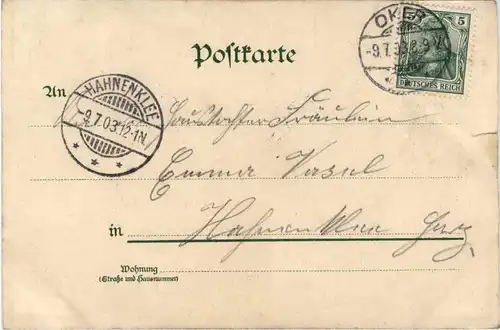 OKER
-9.7.03. 8-9 V.
5
DEUTSCHES REICH
Postkarte
An
HAHNENKLEE
9.7.03. 12-1N.
Fräulein
Emma Vasel
in Hahnenklee Harz
Wohnung
(Straße und Hausnummer)